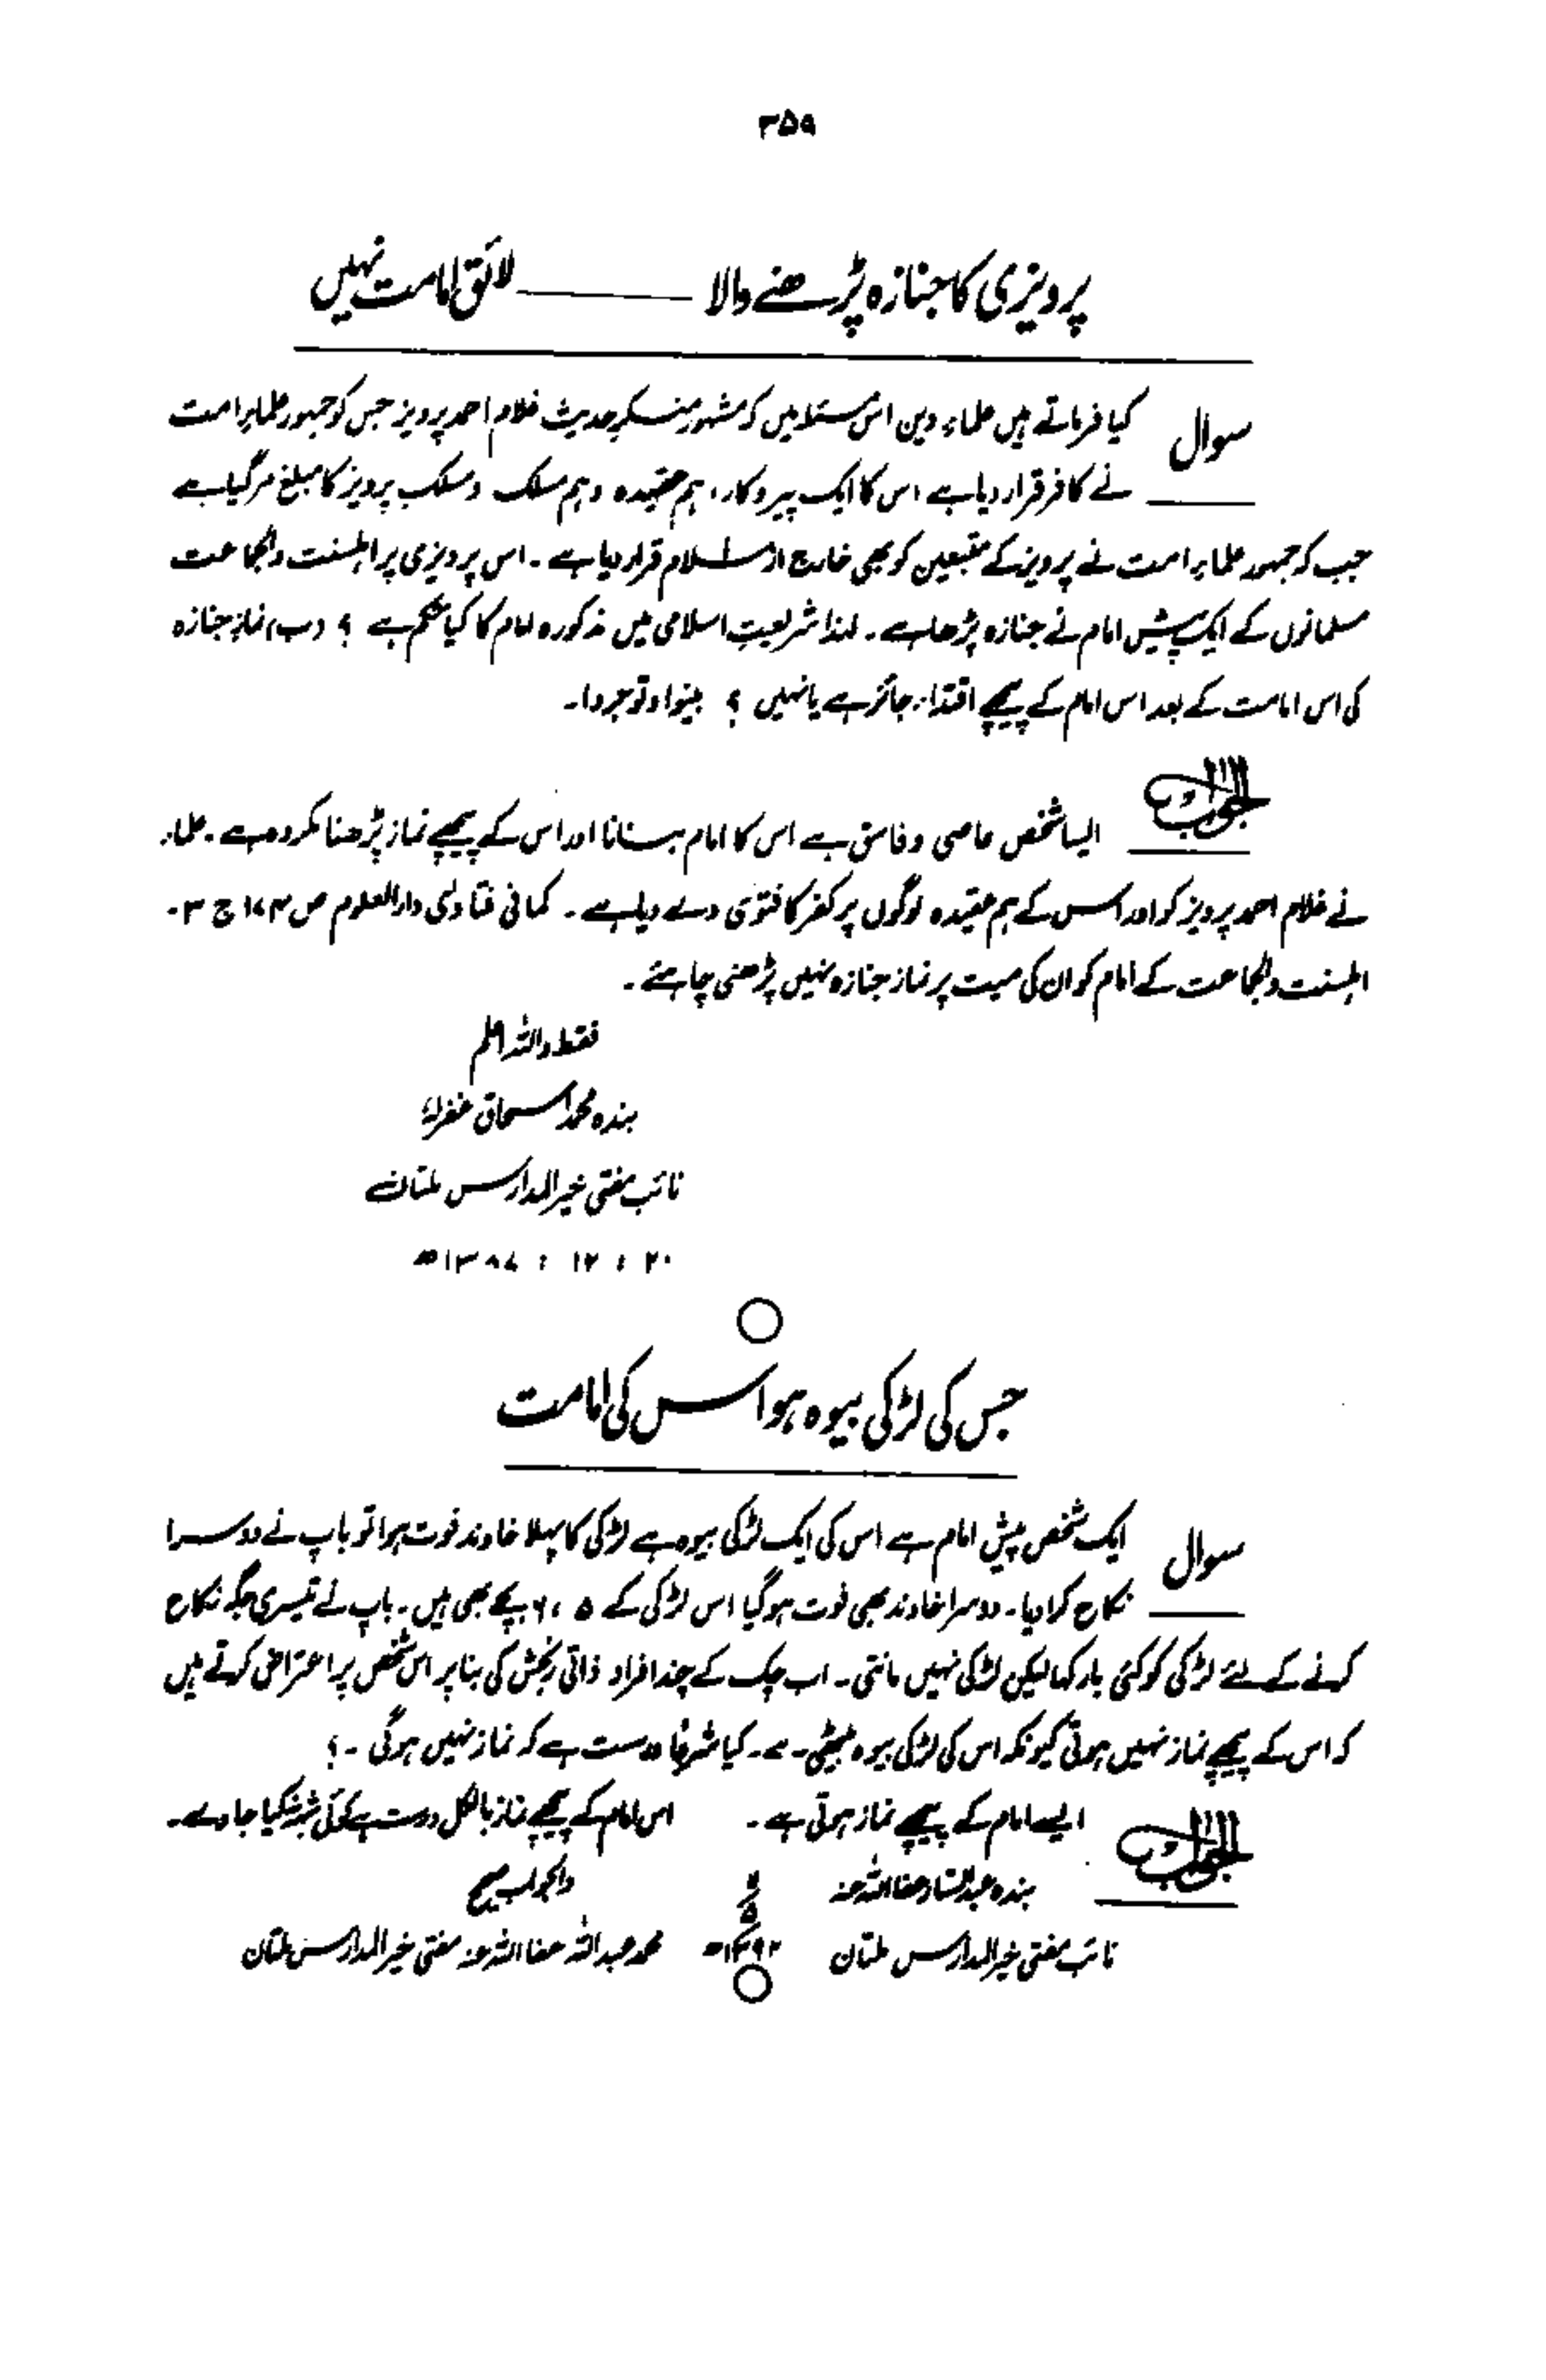 ۳۵۹
پرویزی کا جنازہ پڑھنے والا ــــــ لائق امامت نہیں
سوال کیا فرماتے ہیں علماء دین اس مسئلہ میں کہ مشہور منکرِ حدیث غلام احمد پرویز جس کو جمہور علماءِ امت
نے کافر قرار دیا ہے اس کا ایک پیروکار، ہم عقیدہ وہم مسلک ومسلکِ پرویز کا مبلغ مر گیا ہے
جب کہ جمہور علماءِ امت نے پرویز کے متبعین کو بھی خارج از اسلام قرار دیا ہے ۔ اس پرویزی پر اہلسنت والجماعت
مسلمانوں کے ایک پیش امام نے جنازہ پڑھا ہے ۔ لہٰذا شریعتِ اسلامی میں مذکورہ امام کا کیا حکم ہے ؟ (ب) نمازِ جنازہ
کی اس امامت کے بعد اس امام کے پیچھے اقتداء جائز ہے یا نہیں ؟ بینوا وتوجروا۔
الجواب ایسا شخص عاصی وفاسق ہے اس کا امام بنانا اور اس کے پیچھے نماز پڑھنا مکروہ ہے ۔ علماء
نے غلام احمد پرویز کو اور اس کے ہم عقیدہ لوگوں پر کفر کا فتوٰی دے دیا ہے ۔ کمافی فتاوٰی دارالعلوم ص ج ۳ ۔
اہلسنت والجماعت کے امام کو ان کی میت پر نماز جنازہ نہیں پڑھنی چاہئے ۔
فقط واللہ اعلم
بندہ محمد اسحاق غفرلہ
نائب مفتی خیر المدارس ملتان
۲۰ : ۱۲ : ۱۳۸۷ھ
جس کی لڑکی بیوہ ہو اس کی امامت
سوال ایک شخص پیش امام ہے اس کی ایک لڑکی بیوہ ہے لڑکی کا پہلا خاوند فوت ہوا تو باپ نے دوسرا
نکاح کرا دیا۔ دوسرا خاوند بھی فوت ہوگیا اس لڑکی کے ۵ ، ۶ بچے بھی ہیں ۔ باپ نے تیسری جگہ نکاح
کرنے کے لئے لڑکی کو کئی بار کہا لیکن لڑکی نہیں مانتی ۔ اب چک کے چند افراد ذاتی رنجش کی بنا پر اس شخص پر اعتراض کرتے ہیں
کہ اس کے پیچھے نماز نہیں ہوتی کیونکہ اس کی لڑکی بیوہ بیٹھی ہے ۔ کیا شرعًا درست ہے کہ نماز نہیں ہوگی ۔ ؟
الجواب ایسے امام کے پیچھے نماز ہوتی ہے ۔ اس امام کے پیچھے نماز بالکل درست ہے کوئی شبہ نہ کیا جاوے ۔
بندہ عبدالستار عفا اللہ عنہ والجواب صحیح
نائب مفتی خیر المدارس ملتان محمد عبداللہ عفا اللہ عنہ مفتی خیر المدارس ملتان